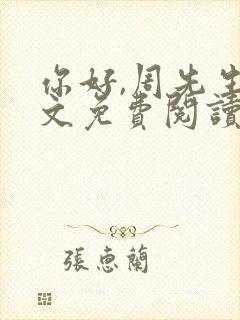 你好,周先生
文免費閱讀
張恵蘭